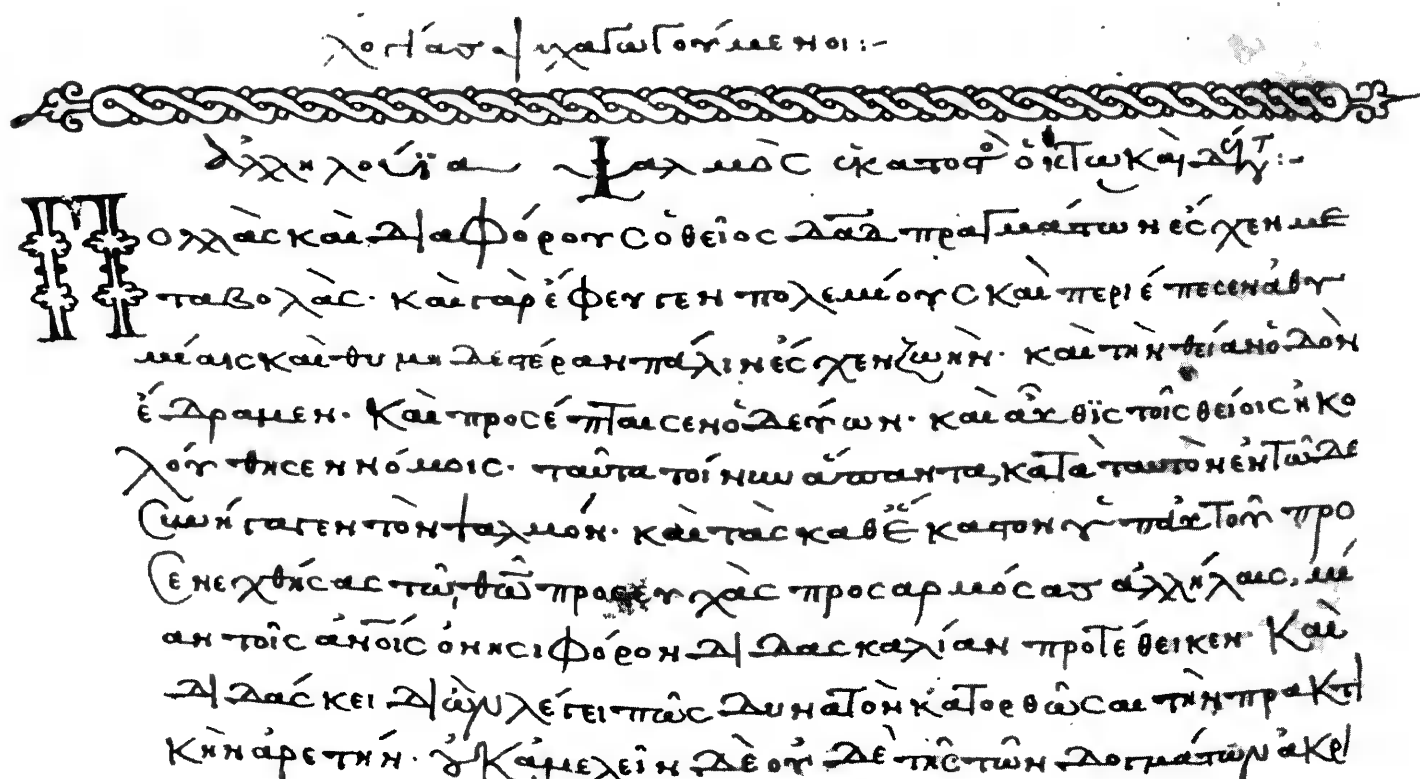 χαγωγούμενοι:-
ἀλληλούϊα ψαλμὸς ἑκατοσ ὀκτωκαιδ:-
Πολλὰς καὶ διαφόρους ὁ θεῖος δᾱδ πραγμάτων ἔσχεν με
ταβολάς· καὶ γὰρ ἔφευγεν πολεμίους καὶ περιέπεσεν ἀθυ
μίαις καὶ θυμηδεστέραν πάλιν ἔσχεν ζωήν· καὶ τὴν θείαν ὁδὸν
ἔδραμεν· Καὶ προσέπταισεν ὁδεύων· καὶ αὖθις τοῖς θείοις ἠκο
λούθησεν νόμοις· ταῦτα τοίνυν ἅπαντα, κατὰ ταυτὸν ἐν τῶδε
συνήγαγεν τὸν ψαλμόν· καὶ τὰς καθ' ἕκαστον ὑπ' αὐτοῦ προ
σενεχθείσας τῶ θῶ προσευχὰς προσαρμόσας ἀλλήλαις, μί
αν τοῖς ἀνοῖς ὀνησιφόρον διδασκαλίαν προτέθεικεν· Καὶ
διδάσκει δι' ὧν λέγει πῶς δυνατὸν κατορθῶσαι τὴν πρακτι
κὴν ἀρετήν· οὐκ ἀμελεῖν δὲ οὐδὲ τῆς τῶν δογμάτων ἀκρι